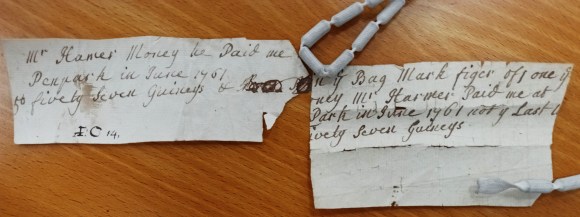 Mr Hamer Money he Paid me
Penpark in June 1761
50 fivety Seven Guineys &
IC 14.
in y Bag Mark figer of 1 one y
oney Mr Harmer Paid me at
Park in June 1761 not y Last
ivety Seven Guineys